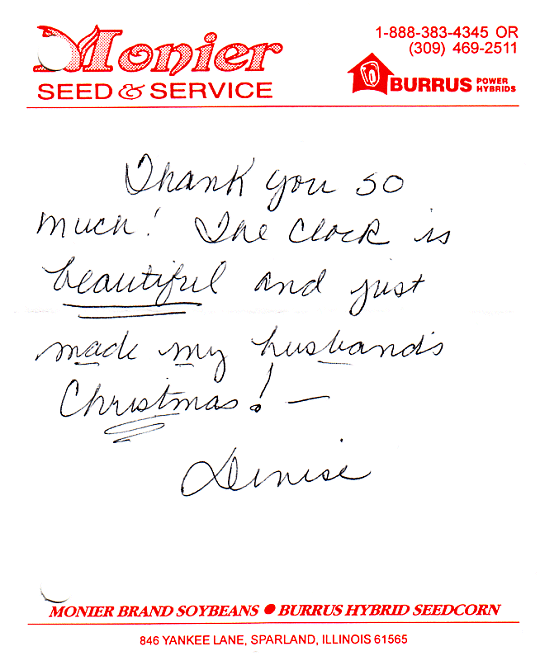 Monier
SEED & SERVICE
1-888-383-4345 OR
(309) 469-2511
BURRUS POWER HYBRIDS
Thank you so
much! The clock is
beautiful and just
made my husband's
Christmas! —
Denise
MONIER BRAND SOYBEANS ● BURRUS HYBRID SEEDCORN
846 YANKEE LANE, SPARLAND, ILLINOIS 61565